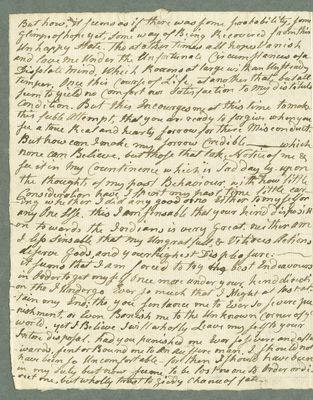 But how, it seems as if there was some probability, some
Glimps of hope yet, some way of Being Recovered from this
Unhappy State, tho at other times all hopes Vanish
and leave me Under the Unfortunat Circumstances of a
Dissolate mind, Which Rooms at large with an Unsteady
temper, One this Course of Life at another that, but all
seem to yield no comfort nor Satisfaction to My distitute
Condition. But this Incourages me at this time to make
this feble Attempt, that you are ready to forgive when you
see a true Real and hearty sorrow for there Misconduct.
But how can I make my sorrow Credible — which
none can Believe, but those that take Notice of me &
see it in my Countinence which is Sad day by
the thought of my past Behaviour, with how little
Consideration have I spent my past time, little car-
ing whether I did any good or no Either to myself or
any One Else, this I am sensable that your kind disposit
on towards the Indians is very Great, neither am
I less Sensable that my Ungratefull, & Vitious Actions
deserve Gods, and your highest Displeasure: —
it seems that I am forced to try the best Endeavours
in order to get myself Once more under your kind direct
on tho I Undergo Ever so much that I Might at last
tain my End: tho you sentance me to Ever so severe pu
nishment, or even Bannish me to the Unknown Corner of y
world, yet I Believe I will wholly Leave my self to your
Intire disposal. had you punished me Ever so severe and aft
wards, sent or Bound me to An master man, I should not
have been so Uncomfortable, for then I should have been
in my duty but now seems to be lost no one to order or di
rect me, but wholly trust to Giddy Chance of fate.